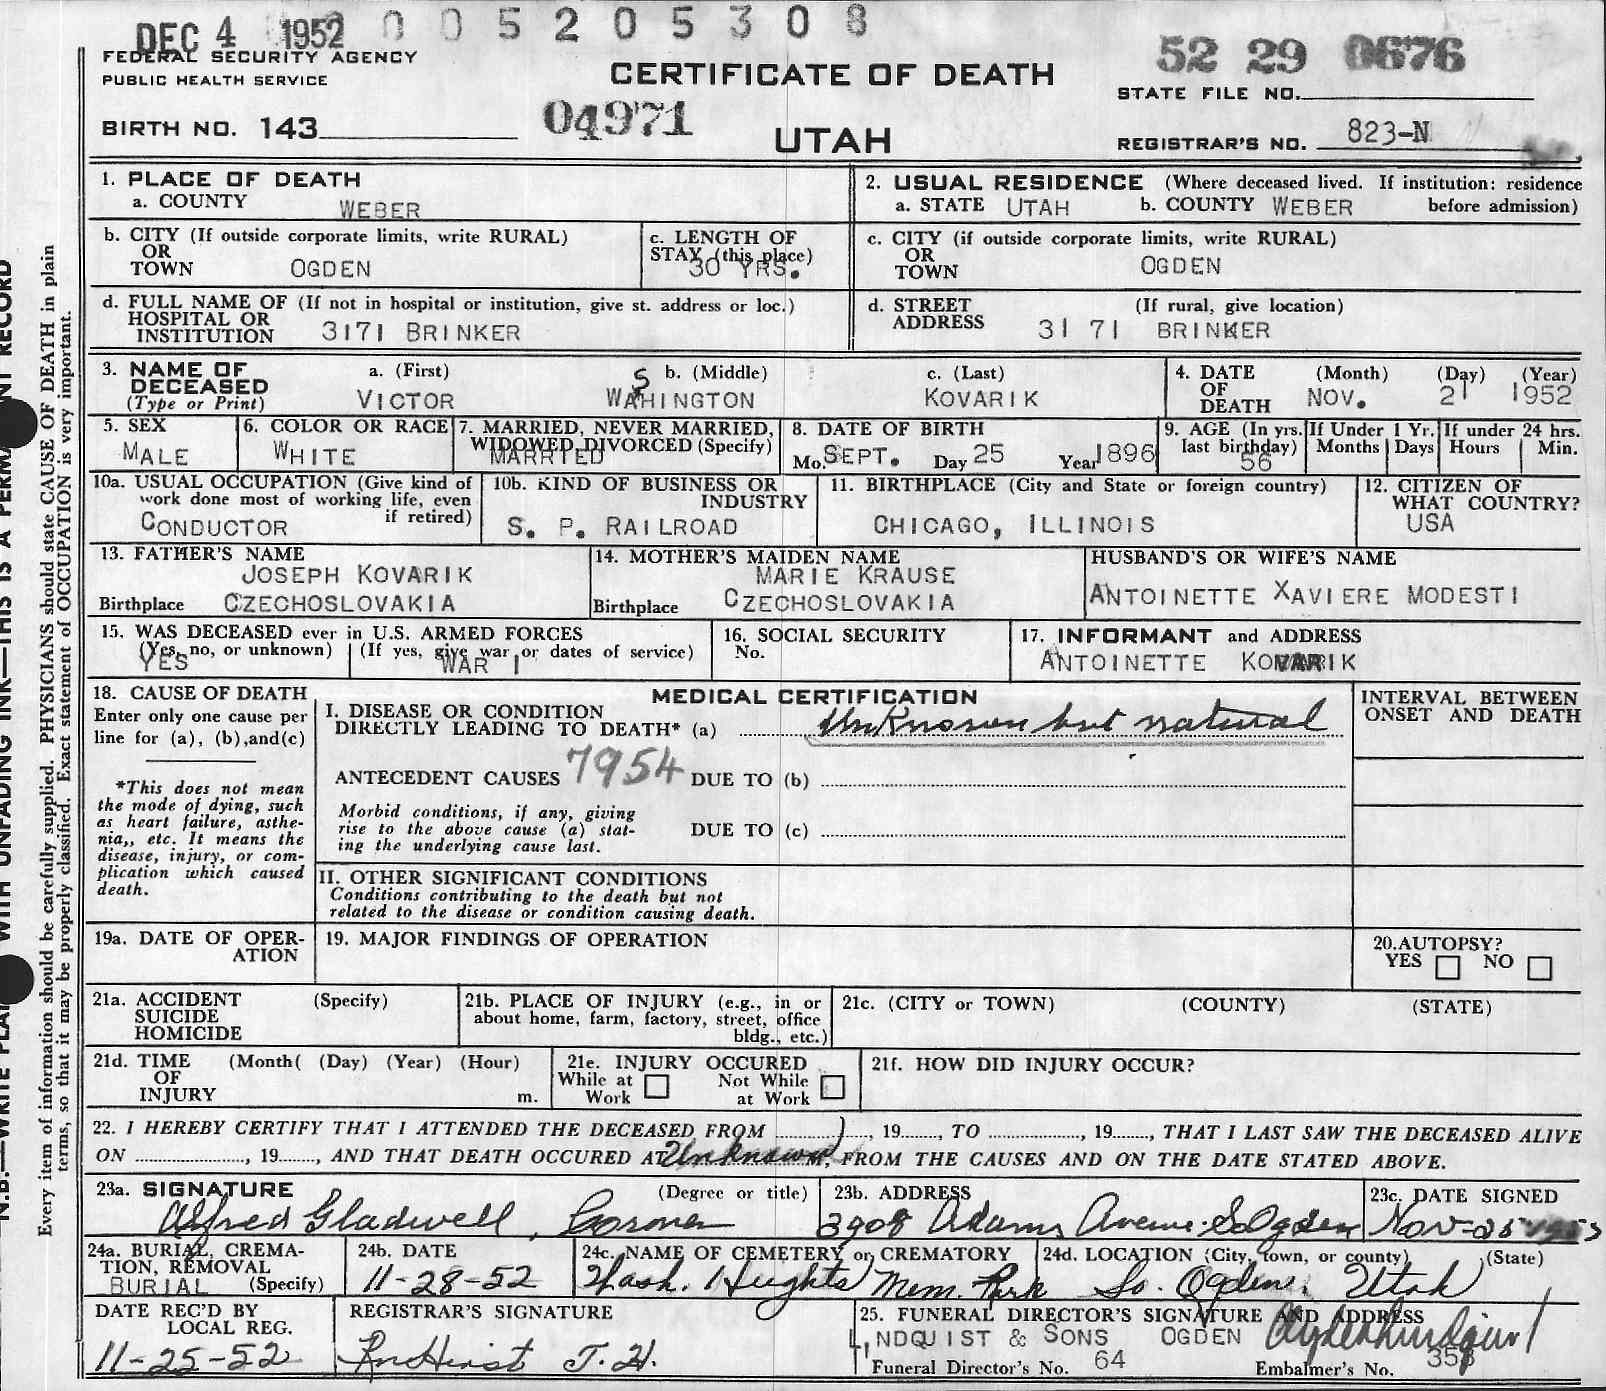 DEC 4 1952 0 0 5 2 0 5 3 0 8
FEDERAL SECURITY AGENCY
PUBLIC HEALTH SERVICE
CERTIFICATE OF DEATH
52 29 0676
STATE FILE NO.
BIRTH NO. 143
04971
UTAH
REGISTRAR'S NO. 823-N
1. PLACE OF DEATH
a. COUNTY WEBER
2. USUAL RESIDENCE (Where deceased lived. If institution: residence
a. STATE UTAH b. COUNTY WEBER before admission)
b. CITY (If outside corporate limits, write RURAL)
OR
TOWN OGDEN
c. LENGTH OF
STAY (this place)
30 YRS.
c. CITY (if outside corporate limits, write RURAL)
OR
TOWN OGDEN
d. FULL NAME OF (If not in hospital or institution, give st. address or loc.)
HOSPITAL OR
INSTITUTION 3171 BRINKER
d. STREET (If rural, give location)
ADDRESS 3171 BRINKER
3. NAME OF
DECEASED
(Type or Print)
a. (First)
VICTOR
b. (Middle)
WASHINGTON
c. (Last)
KOVARIK
4. DATE (Month) (Day) (Year)
OF
DEATH NOV. 21 1952
5. SEX
MALE
6. COLOR OR RACE
WHITE
7. MARRIED, NEVER MARRIED,
WIDOWED, DIVORCED (Specify)
MARRIED
8. DATE OF BIRTH
Mo. SEPT. Day 25 Year 1896
9. AGE (In yrs.
last birthday)
56
If Under 1 Yr.
Months Days
If under 24 hrs.
Hours Min.
10a. USUAL OCCUPATION (Give kind of
work done most of working life, even
if retired)
CONDUCTOR
10b. KIND OF BUSINESS OR
INDUSTRY
S. P. RAILROAD
11. BIRTHPLACE (City and State or foreign country)
CHICAGO, ILLINOIS
12. CITIZEN OF
WHAT COUNTRY?
USA
13. FATHER'S NAME
JOSEPH KOVARIK
Birthplace CZECHOSLOVAKIA
14. MOTHER'S MAIDEN NAME
MARIE KRAUSE
Birthplace CZECHOSLOVAKIA
HUSBAND'S OR WIFE'S NAME
ANTOINETTE XAVIERE MODESTI
15. WAS DECEASED ever in U.S. ARMED FORCES
(Yes, no, or unknown) (If yes, give war or dates of service)
YES WAR I
16. SOCIAL SECURITY
No.
17. INFORMANT and ADDRESS
ANTOINETTE KOVARIK
18. CAUSE OF DEATH
Enter only one cause per
line for (a), (b),and(c)
*This does not mean
the mode of dying, such
as heart failure, asthe-
nia,, etc. It means the
disease, injury, or com-
plication which caused
death.
MEDICAL CERTIFICATION
I. DISEASE OR CONDITION
DIRECTLY LEADING TO DEATH* (a) Unknown but natural
ANTECEDENT CAUSES 7954 DUE TO (b)
Morbid conditions, if any, giving
rise to the above cause (a) stat-
ing the underlying cause last.
DUE TO (c)
II. OTHER SIGNIFICANT CONDITIONS
Conditions contributing to the death but not
related to the disease or condition causing death.
INTERVAL BETWEEN
ONSET AND DEATH
19a. DATE OF OPER-
ATION
19. MAJOR FINDINGS OF OPERATION
20.AUTOPSY?
YES NO
21a. ACCIDENT (Specify)
SUICIDE
HOMICIDE
21b. PLACE OF INJURY (e.g., in or
about home, farm, factory, street, office
bldg., etc.)
21c. (CITY or TOWN) (COUNTY) (STATE)
21d. TIME (Month( (Day) (Year) (Hour)
OF
INJURY m.
21e. INJURY OCCURED
While at Not While
Work at Work
21f. HOW DID INJURY OCCUR?
22. I HEREBY CERTIFY THAT I ATTENDED THE DECEASED FROM , 19 , TO , 19 , THAT I LAST SAW THE DECEASED ALIVE
ON , 19 , AND THAT DEATH OCCURED AT Unknown M, FROM THE CAUSES AND ON THE DATE STATED ABOVE.
23a. SIGNATURE (Degree or title)
Alfred Gladwell, Coroner
23b. ADDRESS
3908 Adams Avenue S. Ogden
23c. DATE SIGNED
Nov-25
24a. BURIAL, CREMA-
TION, REMOVAL
BURIAL (Specify)
24b. DATE
11-28-52
24c. NAME OF CEMETERY or CREMATORY
Wash. Heights Mem. Park
24d. LOCATION (City, town, or county) (State)
So. Ogden, Utah
DATE REC'D BY
LOCAL REG.
11-25-52
REGISTRAR'S SIGNATURE
25. FUNERAL DIRECTOR'S SIGNATURE AND ADDRESS
LINDQUIST & SONS OGDEN
Funeral Director's No. 64
Embalmer's No. 358
Every item of information should be carefully supplied. PHYSICIANS should state CAUSE OF DEATH in plain
terms, so that it may be properly classified. Exact statement of OCCUPATION is very important.